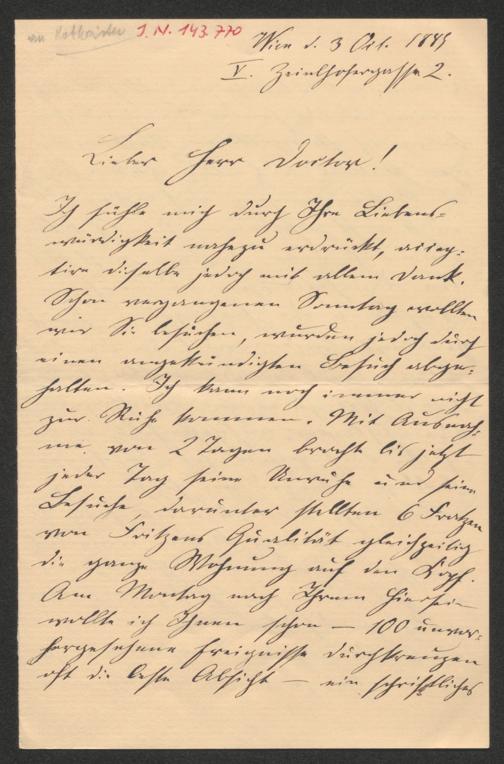 an Rotkoister J. N. 143.770
Wien d. 3 Oct. 1889
V. Zeinlhofergasse 2.
Lieber Herr Doctor!
Ich fühle mich durch Ihre Liebens-
würdigkeit nahezu erdrückt, accep-
tire dieselbe jedoch mit allem Dank.
Schon vergangenen Sonntag wollten
wir Sie besuchen, wurden jedoch durch
einen angekündigten Besuch abge-
halten. Ich kann noch immer nicht
zur Ruhe kommen. Mit Ausnah-
me von 2 Tagen brachte bis jetzt
jeder Tag seine Unruhe und seine
Besuche, darunter stellten 6 Fratzen
von Fritzens Qualität gleichzeitig
die ganze Wohnung auf den Kopf.
Am Montag nach Ihrem Hiersein
wollte ich Ihnen schon — 100 unvor-
hergesehene Ereignisse durchkreuzen
oft die beste Absicht — ein schriftliches